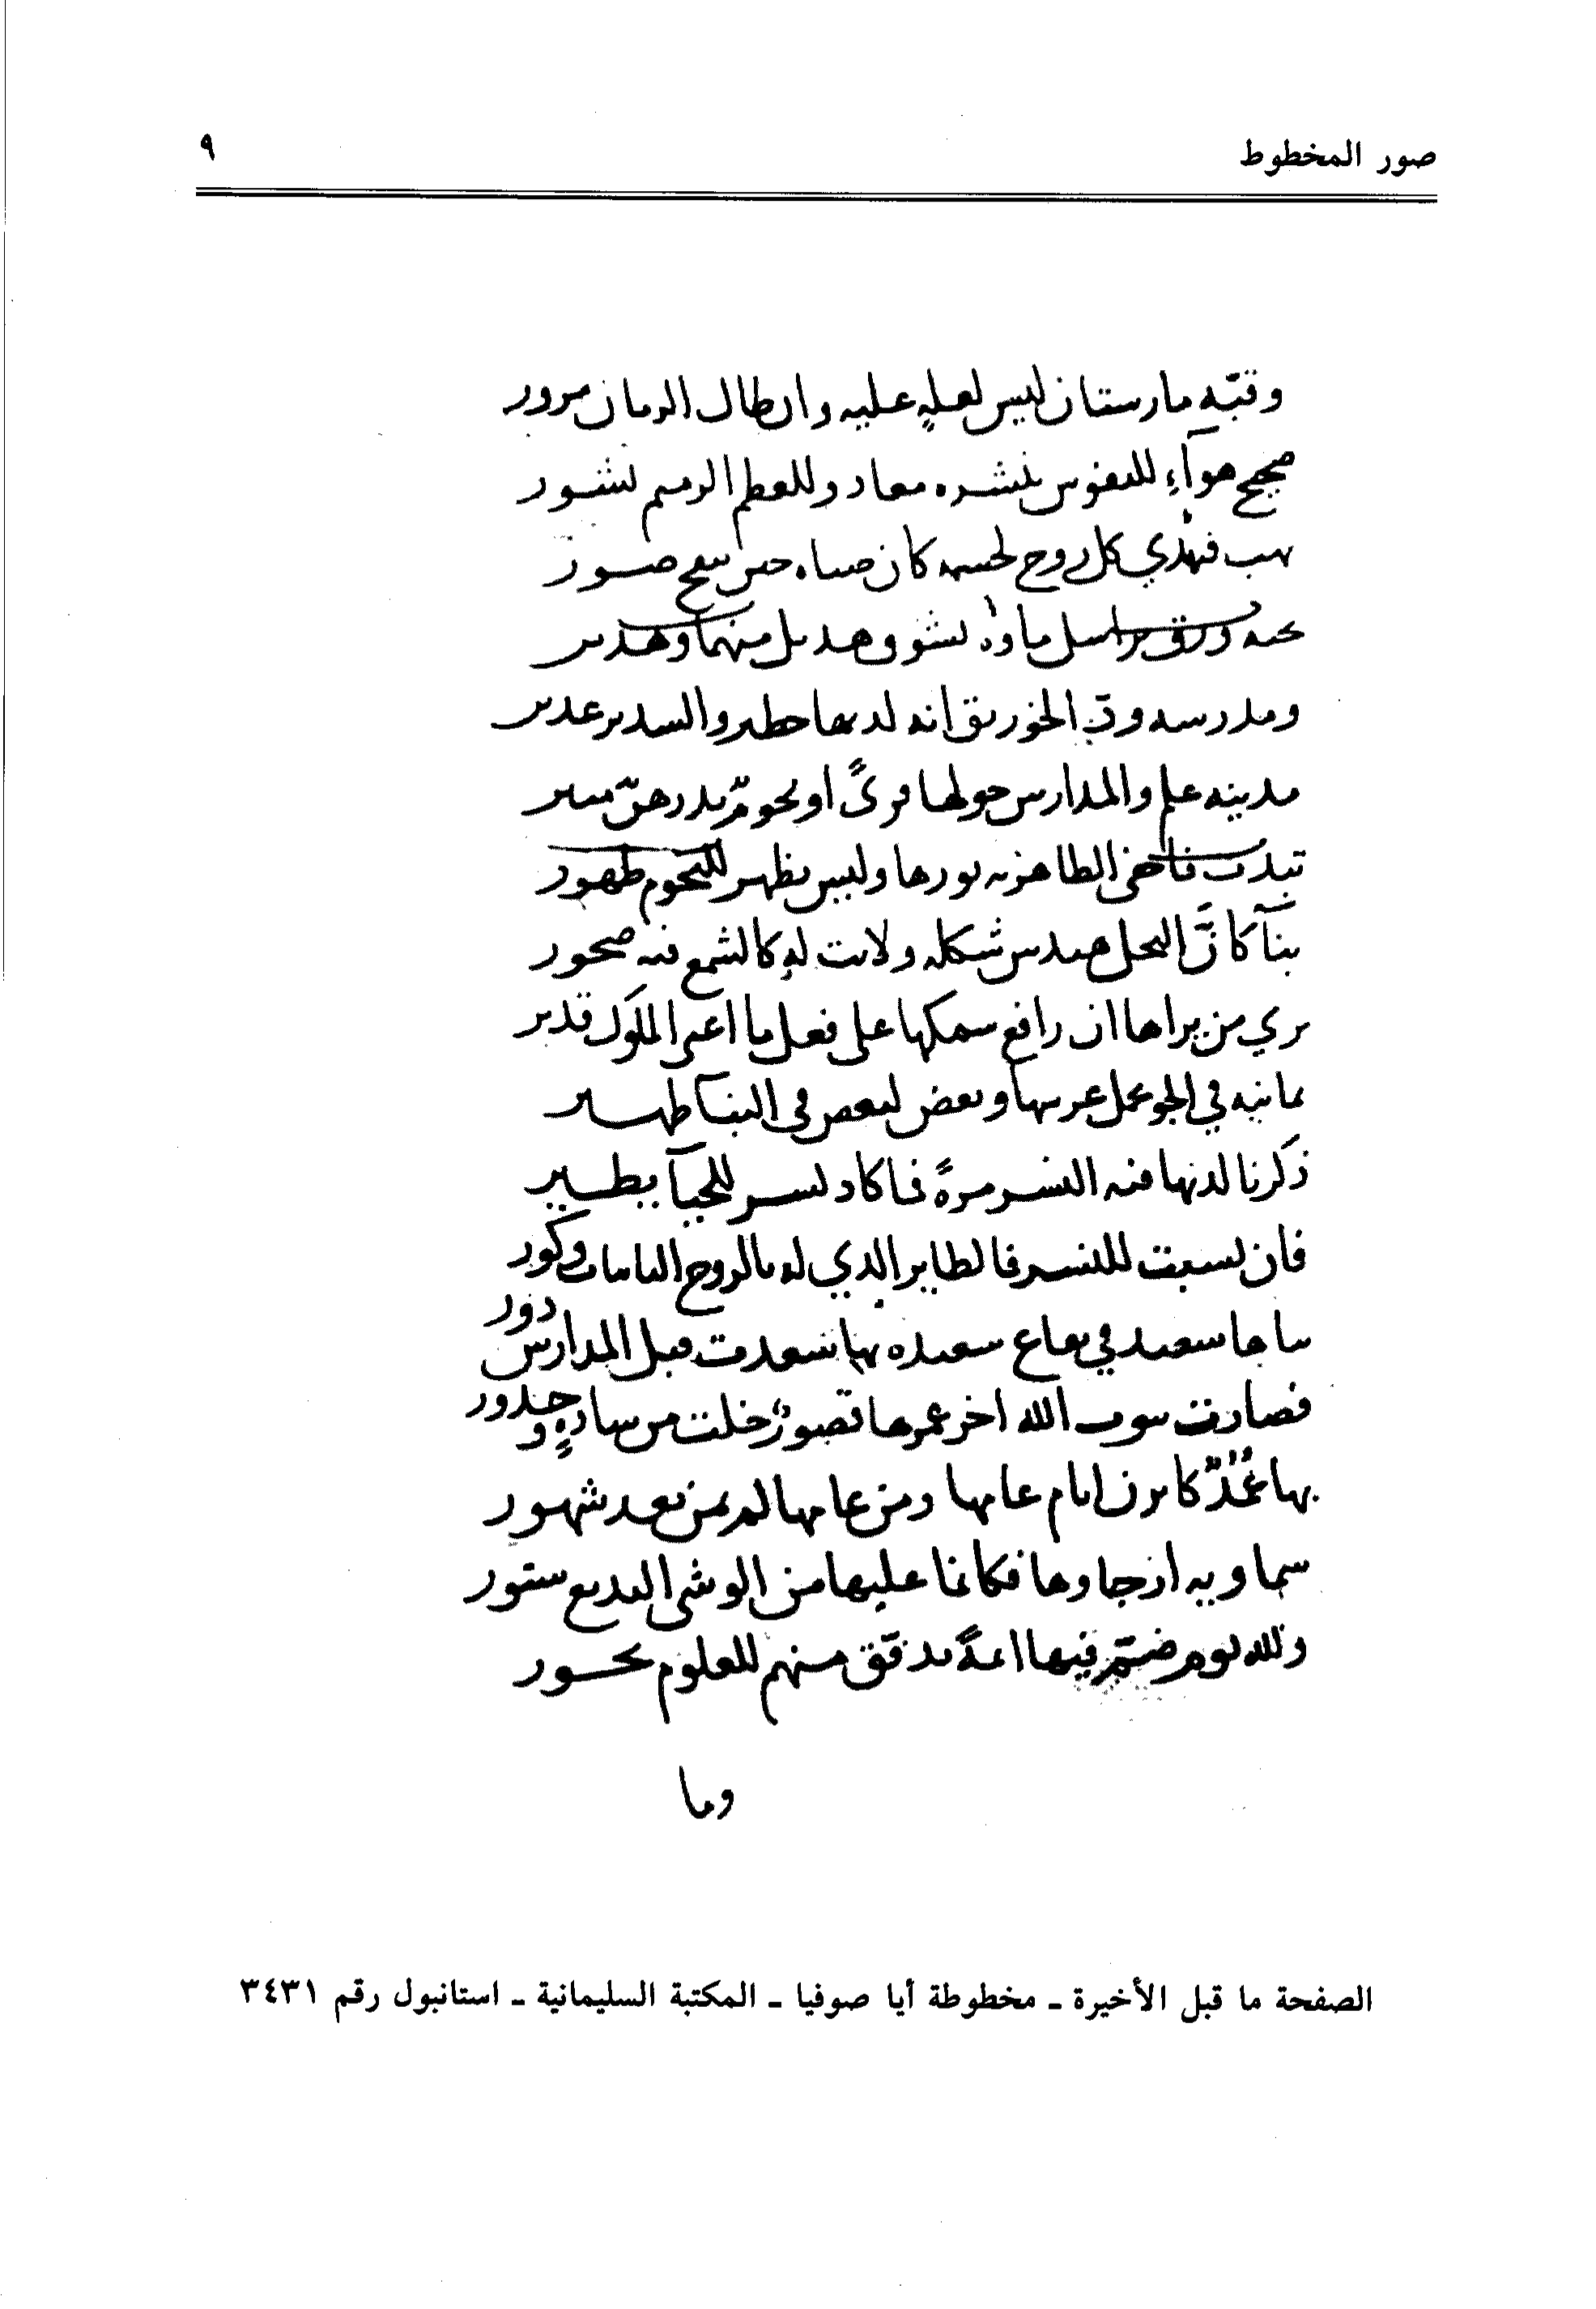 صور المخطوط
٩
وقبّه مارستان ليس لعلةٍ عليه وان طال الزمان مرور
صحيح هوآءٍ للنفوس بنشره معاد وللعظم الرميم نشور
يهب فيهدي كل روح لجسمه كان صباه حين ينفخ صور
ورق تراسل ماوه لشوق هديل منهما وهدير
ومدرسه ود الخورنق انه لديها حظير والسدير غدير
مدينه علم والمدارس حولها قرىً او نجومٌ بدرهنّ منير
تبدت فاخفى الظاهريه نورها وليس يظهر للنجوم ظهور
بنآ كانّ النحل هندس شكله ولانت له كالشمع فيه صخور
يري من يراها ان رافع سمكها على فعل ما اعيى الملوك قدير
ثمانيه في الجو تحمل عرشها وبعض لبعض في البنآ ظهير
ذكرنا لديها قبه النسر مرةً فما كاد نسر للحيآ يطير
فان نسبت للنسر فالطاير الذي له بالروج الثابتات وكور
بناها سعيد في بقاع سعيده بها سعدت قبل المدارس دور
فصارت بيوت الله اخر عمرها قصورٌ خلت من ساده وخدور
بها عُمُدٌ كاثرن ايام عامها ومن عامها لم يمض بعد شهور
سماويه ارجاوها فكانما عليها من الوشى البديع ستور
ولله يوم ضمّ فيها ايمةً تدفّق منهم للعلوم بحور
وما
الصفحة ما قبل الأخيرة ـ مخطوطة أيا صوفيا ـ المكتبة السليمانية ـ استانبول رقم ٣٤٣١